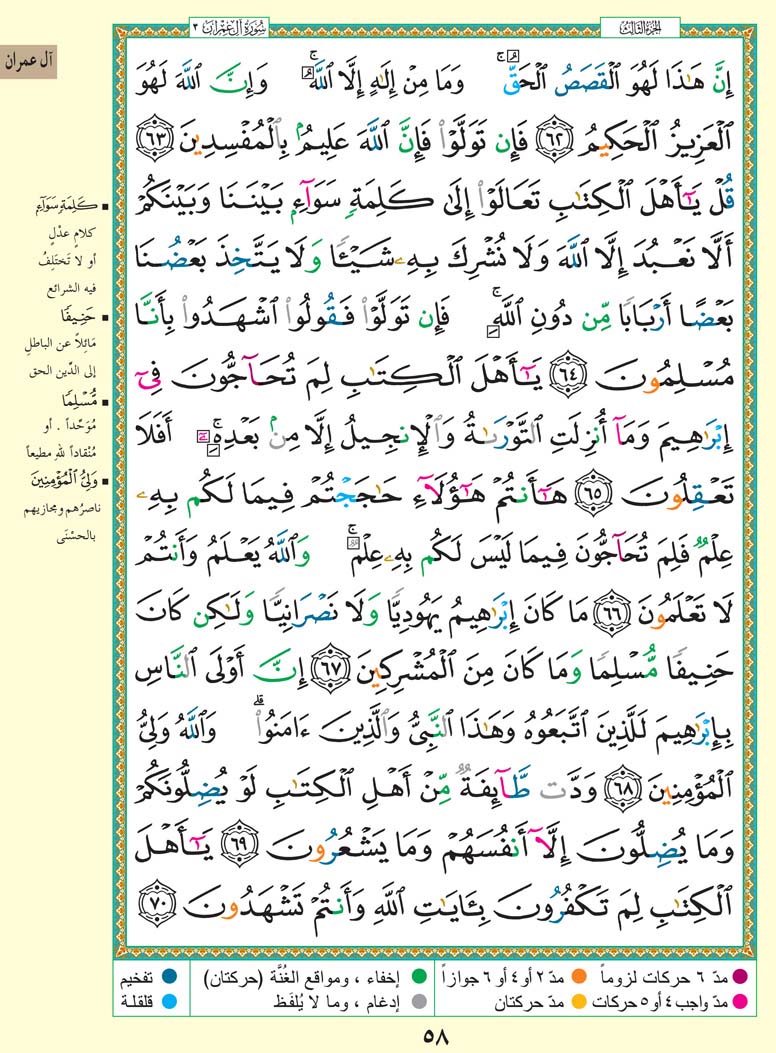 سُورَةُ آلِ عِمْرَان ٣
الجزء الثالث
آل عمران
إِنَّ هَٰذَا لَهُوَ ٱلْقَصَصُ ٱلْحَقُّ ۚ وَمَا مِنْ إِلَٰهٍ إِلَّا ٱللَّهُ ۚ وَإِنَّ ٱللَّهَ لَهُوَ
ٱلْعَزِيزُ ٱلْحَكِيمُ ٦٢ فَإِن تَوَلَّوْا۟ فَإِنَّ ٱللَّهَ عَلِيمٌۢ بِٱلْمُفْسِدِينَ ٦٣
قُلْ يَٰٓأَهْلَ ٱلْكِتَٰبِ تَعَالَوْا۟ إِلَىٰ كَلِمَةٍ سَوَآءٍۭ بَيْنَنَا وَبَيْنَكُمْ
أَلَّا نَعْبُدَ إِلَّا ٱللَّهَ وَلَا نُشْرِكَ بِهِۦ شَيْـًٔا وَلَا يَتَّخِذَ بَعْضُنَا
بَعْضًا أَرْبَابًا مِّن دُونِ ٱللَّهِ ۚ فَإِن تَوَلَّوْا۟ فَقُولُوا۟ ٱشْهَدُوا۟ بِأَنَّا
مُسْلِمُونَ ٦٤ يَٰٓأَهْلَ ٱلْكِتَٰبِ لِمَ تُحَآجُّونَ فِىٓ
إِبْرَٰهِيمَ وَمَآ أُنزِلَتِ ٱلتَّوْرَىٰةُ وَٱلْإِنجِيلُ إِلَّا مِنۢ بَعْدِهِۦٓ ۚ أَفَلَا
تَعْقِلُونَ ٦٥ هَٰٓأَنتُمْ هَٰٓؤُلَآءِ حَٰجَجْتُمْ فِيمَا لَكُم بِهِۦ
عِلْمٌ فَلِمَ تُحَآجُّونَ فِيمَا لَيْسَ لَكُم بِهِۦ عِلْمٌ ۚ وَٱللَّهُ يَعْلَمُ وَأَنتُمْ
لَا تَعْلَمُونَ ٦٦ مَا كَانَ إِبْرَٰهِيمُ يَهُودِيًّا وَلَا نَصْرَانِيًّا وَلَٰكِن كَانَ
حَنِيفًا مُّسْلِمًا وَمَا كَانَ مِنَ ٱلْمُشْرِكِينَ ٦٧ إِنَّ أَوْلَى ٱلنَّاسِ
بِإِبْرَٰهِيمَ لَلَّذِينَ ٱتَّبَعُوهُ وَهَٰذَا ٱلنَّبِىُّ وَٱلَّذِينَ ءَامَنُوا۟ ۗ وَٱللَّهُ وَلِىُّ
ٱلْمُؤْمِنِينَ ٦٨ وَدَّت طَّآئِفَةٌ مِّنْ أَهْلِ ٱلْكِتَٰبِ لَوْ يُضِلُّونَكُمْ
وَمَا يُضِلُّونَ إِلَّآ أَنفُسَهُمْ وَمَا يَشْعُرُونَ ٦٩ يَٰٓأَهْلَ
ٱلْكِتَٰبِ لِمَ تَكْفُرُونَ بِـَٔايَٰتِ ٱللَّهِ وَأَنتُمْ تَشْهَدُونَ ٧٠
كَلِمَةٍ سَوَآءٍ
كلامٍ عدْلٍ
أو لا تَختَلِفُ
فيه الشرائع
حَنِيفًا
مَائِلاً عن الباطلِ
إلى الدِّين الحق
مُّسْلِمًا
مُوَحِّداً . أو
مُنْقاداً لله مطيعاً
وَلِىُّ ٱلْمُؤْمِنِينَ
ناصرُهم ومجازيهم
بالحسْنَى
مدّ ٦ حركات لزوماً
مدّ ٢ أو ٤ أو ٦ جوازاً
إخفاء ، ومواقع الغُنَّة (حركتان)
تفخيم
مدّ واجب ٤ أو ٥ حركات
مدّ حركتان
إدغام ، وما لا يُلفَظ
قلقلة
٥٨